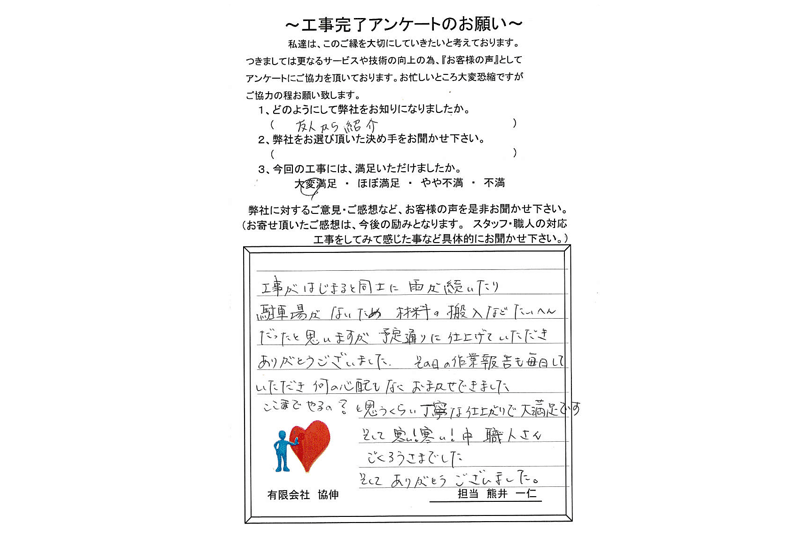 ～工事完了アンケートのお願い～
私達は、このご縁を大切にしていきたいと考えております。
つきましては更なるサービスや技術の向上の為、『お客様の声』として
アンケートにご協力を頂いております。お忙しいところ大変恐縮ですが
ご協力の程お願い致します。
１、どのようにして弊社をお知りになりましたか。
（ 友人から紹介 ）
２、弊社をお選び頂いた決め手をお聞かせ下さい。
（ ）
３、今回の工事には、満足いただけましたか。
大変満足 ・ ほぼ満足 ・ やや不満 ・ 不満
弊社に対するご意見・ご感想など、お客様の声を是非お聞かせ下さい。
（お寄せ頂いたご感想は、今後の励みとなります。 スタッフ・職人の対応
工事をしてみて感じた事など具体的にお聞かせ下さい。）
工事がはじまると同士に 雨が続いたり
駐車場が ないため 材料の搬入など たいへん
だったと思いますが 予定通りに仕上げていただき
ありがとうございました. その日の作業報告も毎日して
いただき 何の心配もなく おまかせできました
ここまで やるの？ と思うくらい 丁寧な仕上がりで 大満足です
そして 寒い！寒い！中 職人さん
ごくろうさまでした
そして ありがとう ございました。
有限会社 協伸
担当 熊井 一仁